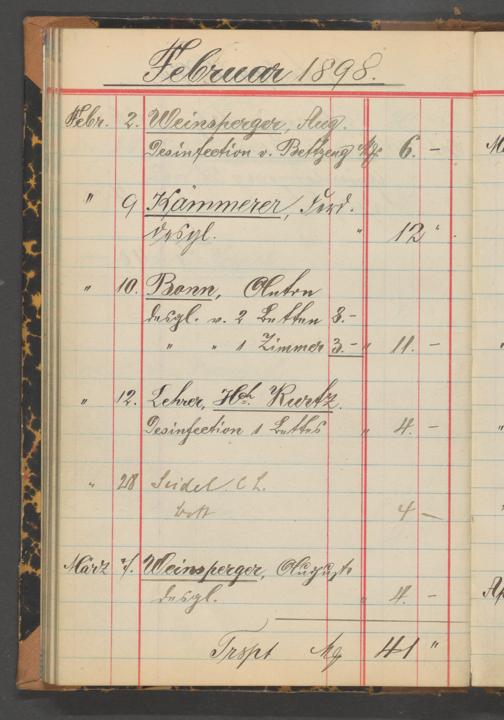 Februar 1898.
Febr. 2. Weinsperger, Aug.
Desinfection v. Bettzeug Mk. 6. –
" 9 Kämmerer, Ferd.
desgl. " 12 "
" 10. Bann,
desgl. v. 2 Betten 8.–
" " 1 Zimmer 3.– " 11. –
" 12. Lehrer, Hch. Kurtz.
Desinfection 1 Bettes " 4. –
" 28 Seidel. C L.
Bett 4 –
März Weinsperger, Auguste
desgl. " 4. –
Trspt Mk 41 "